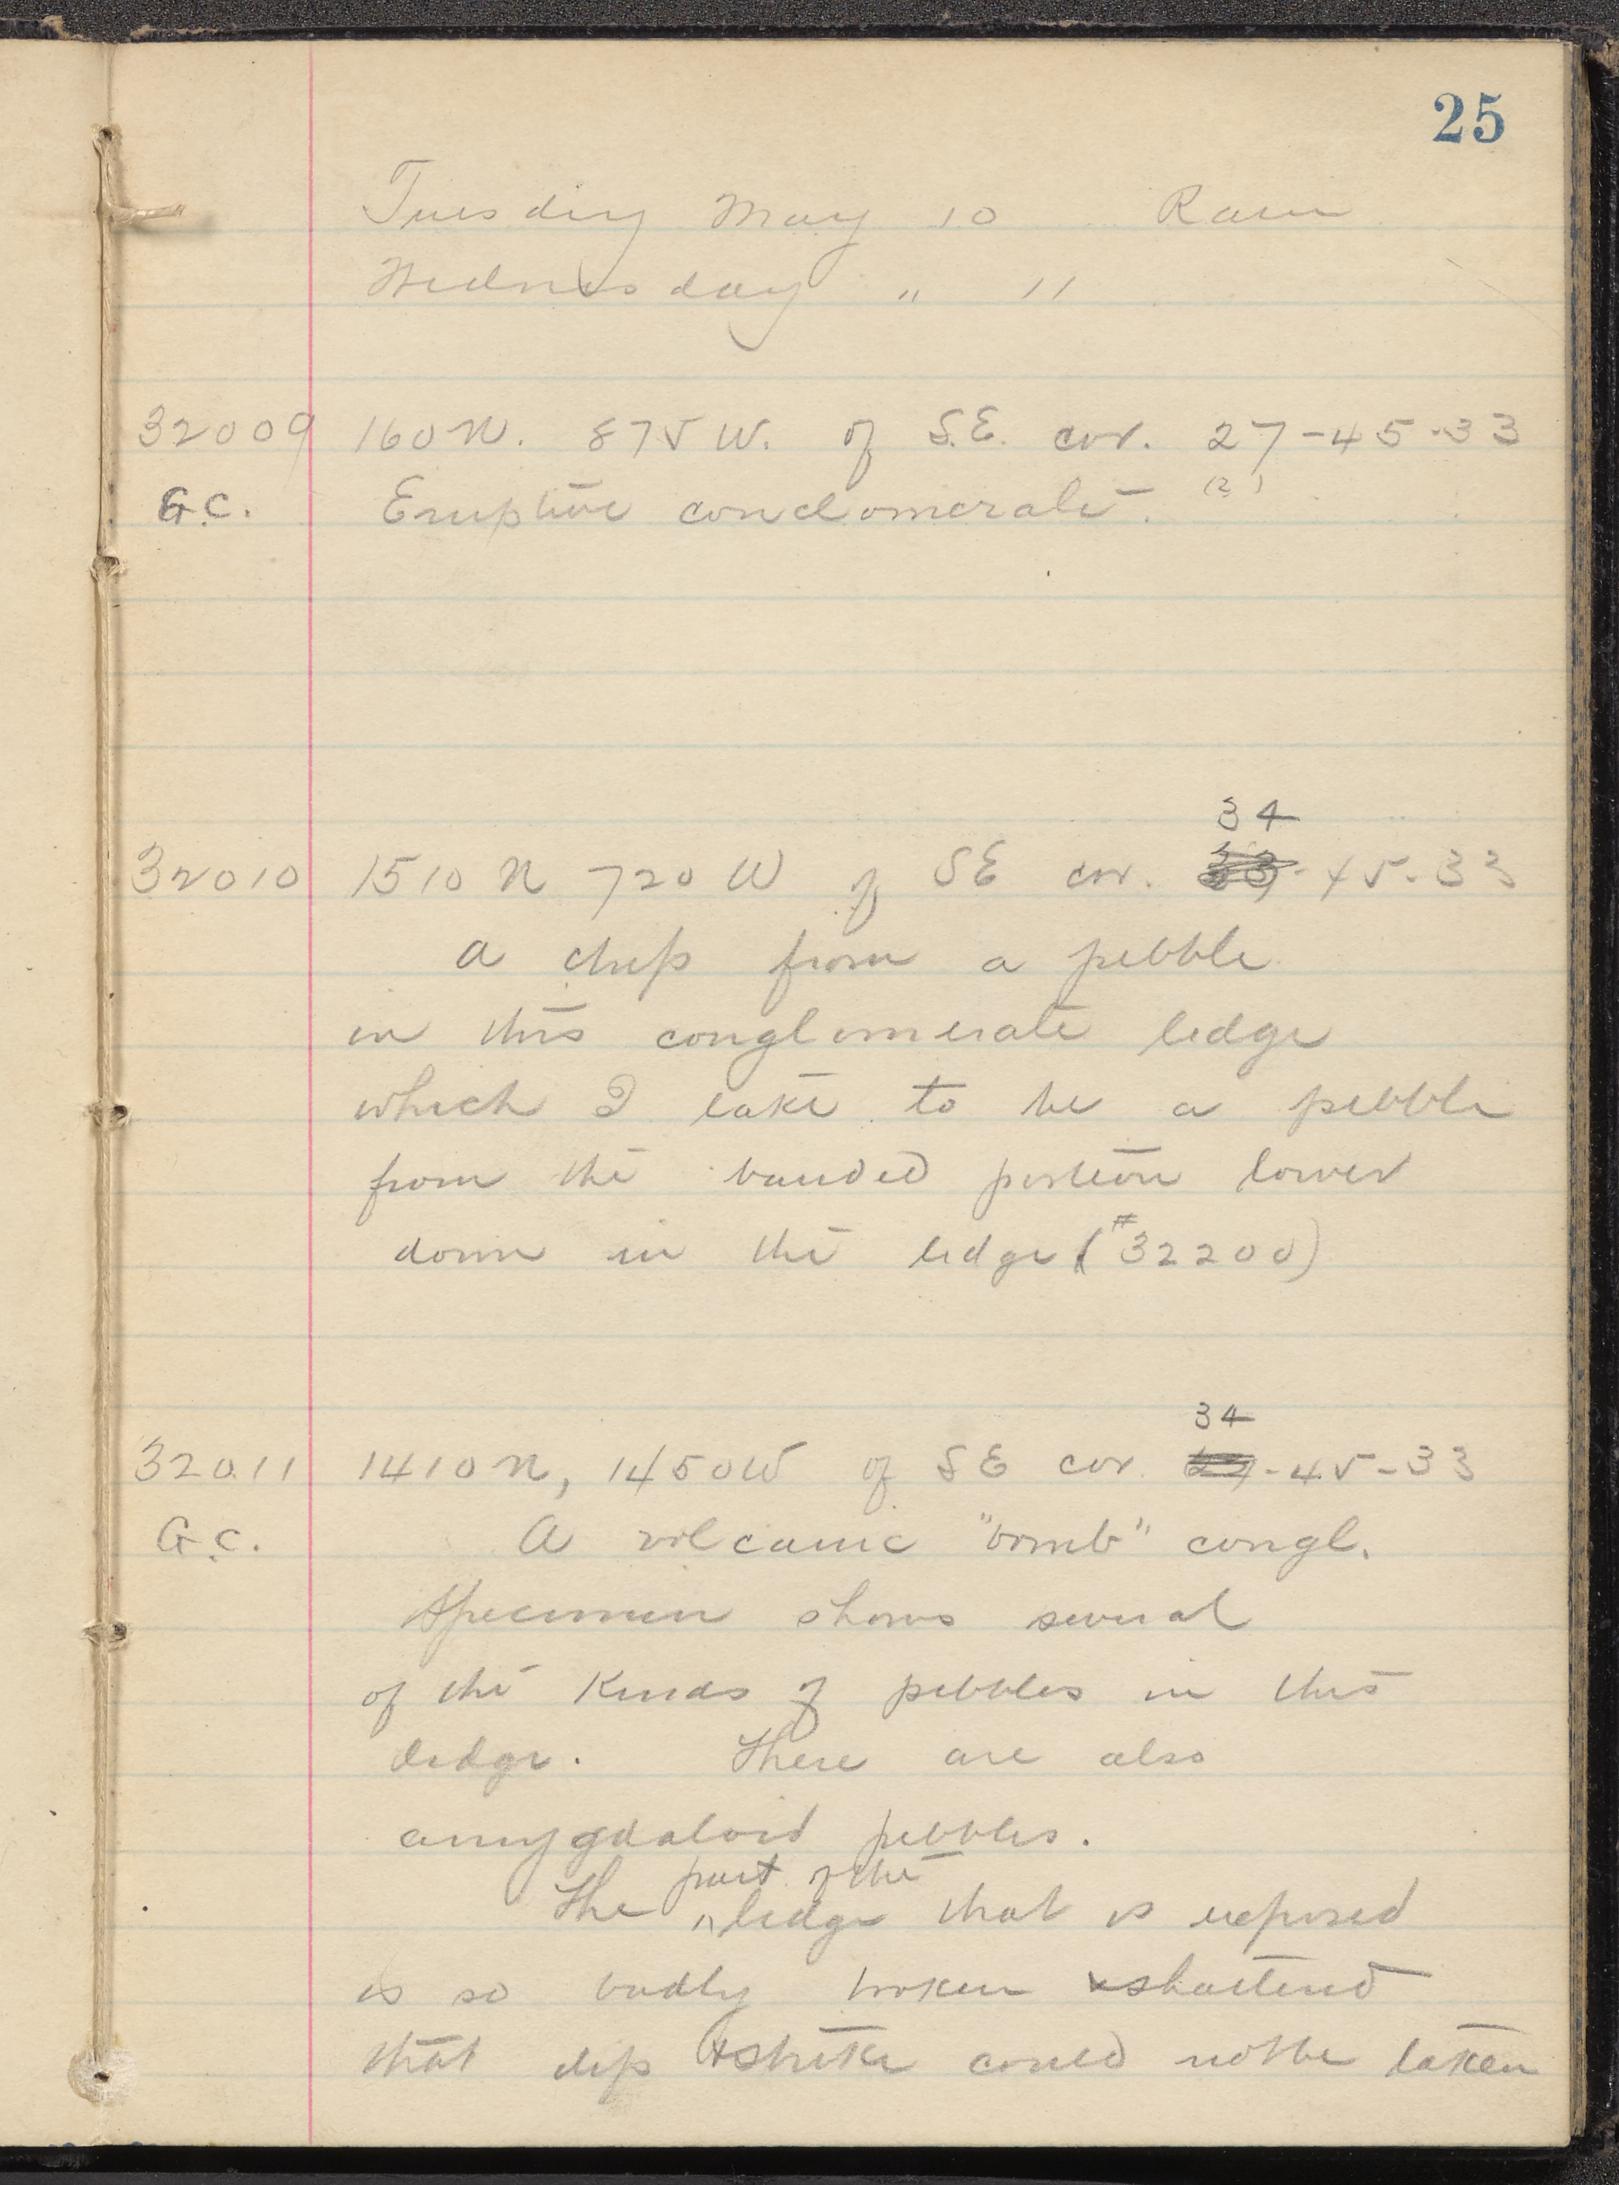 25
Tuesday May 10 Rain
Wednesday " 11
32009 160 N. 875 W. of S.E. cor. 27-45-33
G.C. Eruptive conclomerate. (2)
34
32010 1510 N 720 W of SE cor. 33-45-33
A chip from a pebble
in this conglomerate ledge
which I take to be a pebble
from the banded portion lower
down in the ledge (#32200)
34
32011 1410 N, 1450 W of SE cor. 27-45-33
G.C. A volcanic "bomb" congl.
Specimen shows several
of the kinds of pebbles in this
ledge. There are also
amygdaloid pebbles.
part of the
The ^ ledge that is exposed
is so badly broken & shattered
that dip & strike could not be taken